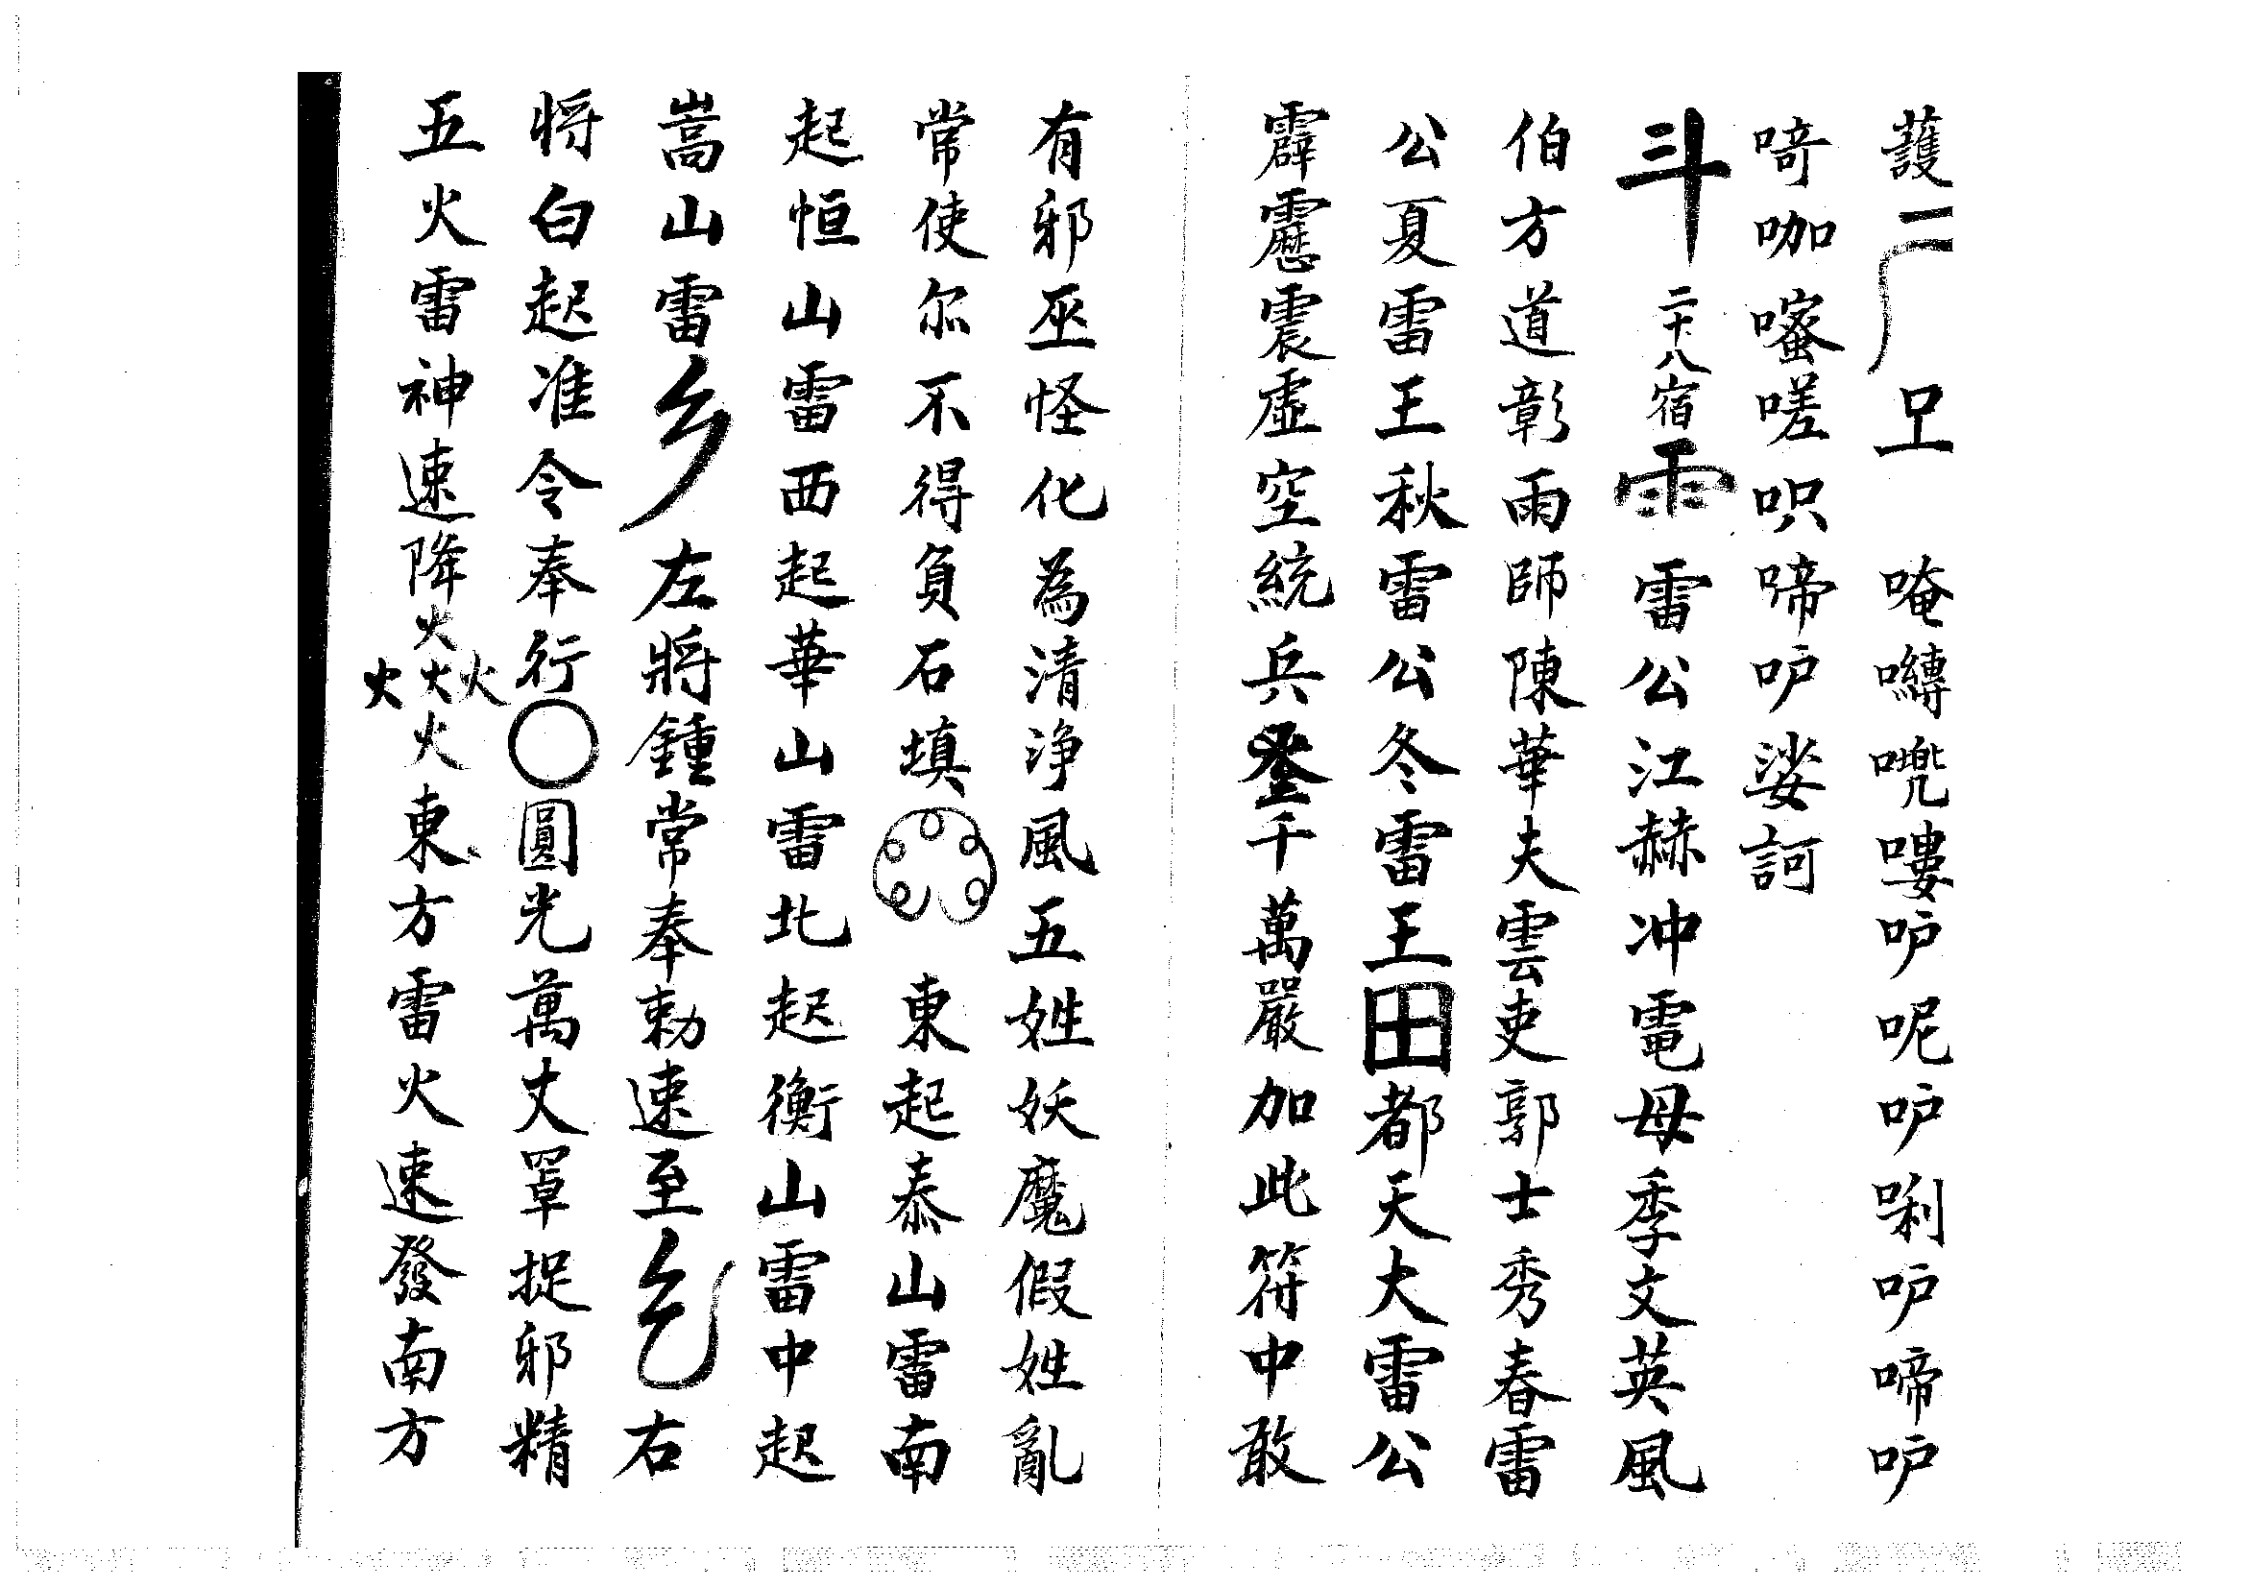 護 唵囀嘥嘍吣呢吣唎吣啼吣
㗨咖㗫嗟呮啼吣娑訶
斗二十八宿雷公江赫冲電母季文英風
伯方道彰雨師陳華夫雲吏郭士秀春雷
公夏雷王秋雷公冬雷王田都天大雷公
霹靂震虛空統兵千萬嚴加此符中敢
有邪巫怪化為清淨風五姓妖魔假姓亂
常使尔不得負石填 東起泰山雷南
起恒山雷西起華山雷北起衡山雷中起
嵩山雷 左將鍾常奉勅速至 右
将白起准令奉行圓光萬丈罩捉邪精
五火雷神速降火火火火火東方雷火速發南方